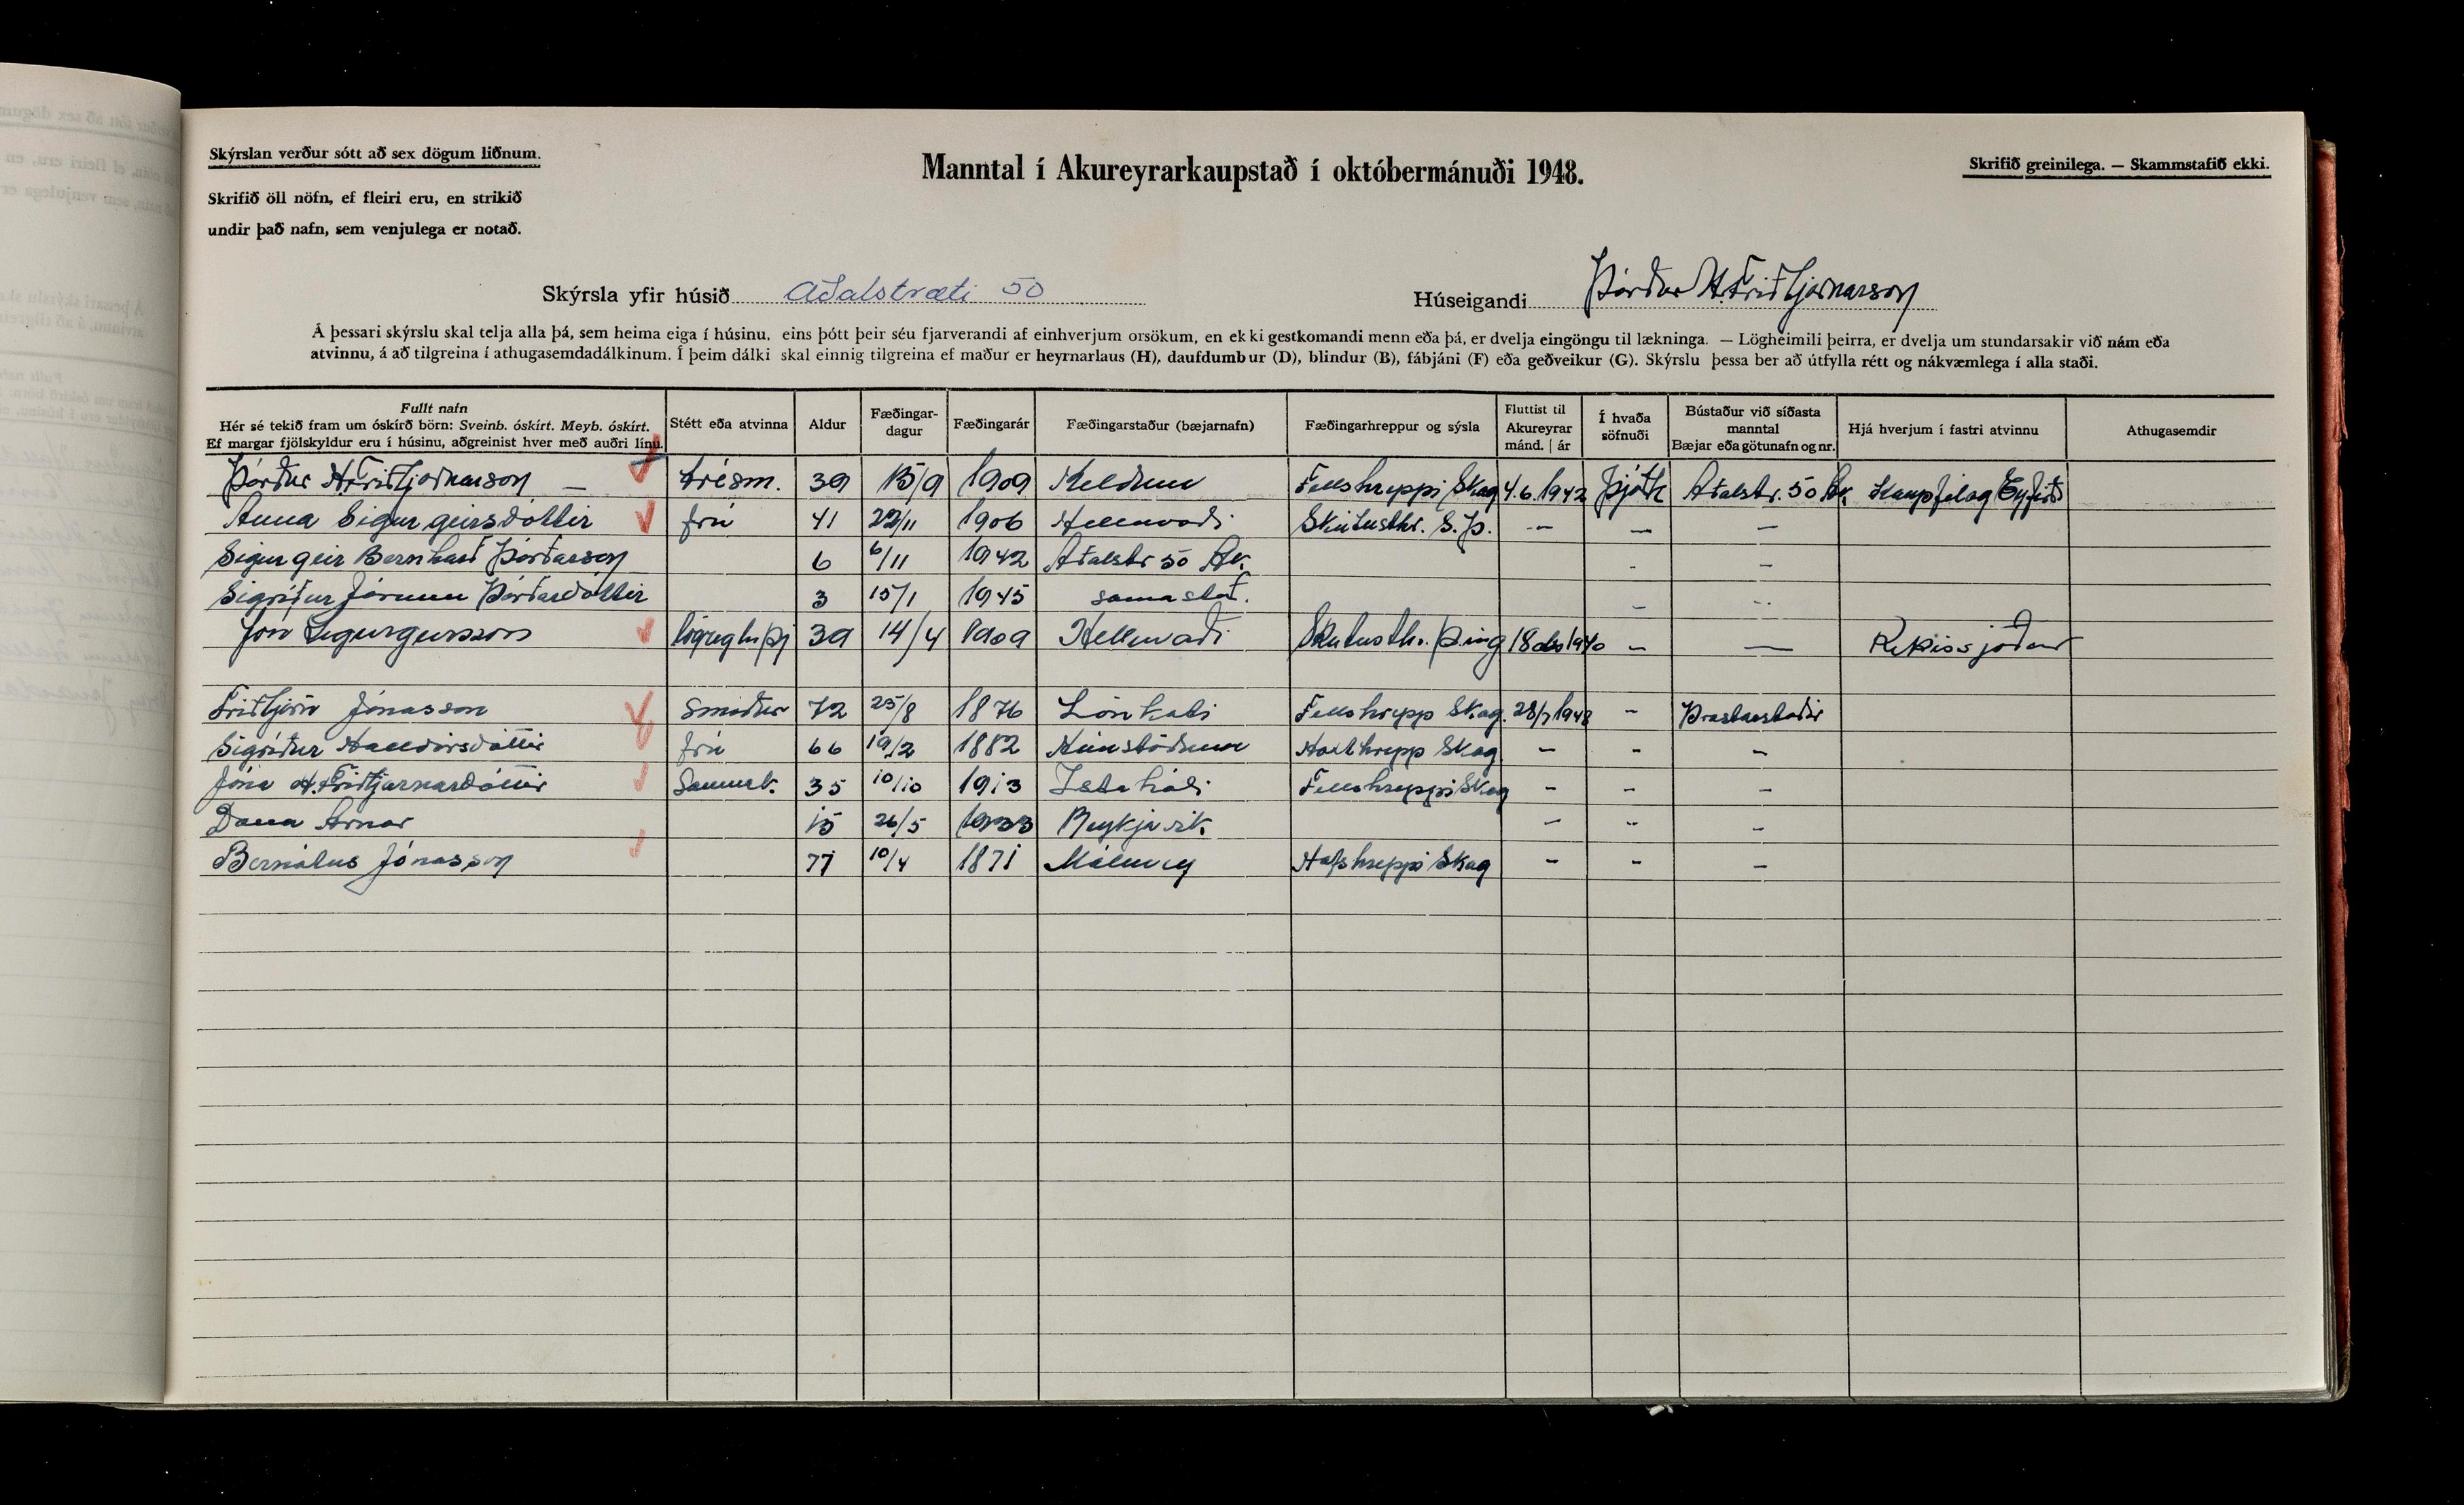 Skýrslan verður sótt að sex dögum liðnum.
Skrifið öll nöfn, ef fleiri eru, en strikið
undir það nafn, sem venjulega er notað.
Manntal í Akureyrarkaupstað í októbermánuði 1948.
Skrifið greinilega. — Skammstafið ekki.
Skýrsla yfir húsið Aðalstræti 50
Húseigandi Þórður A. Friðbjarnarson
Á þessari skýrslu skal telja alla þá, sem heima eiga í húsinu, eins þótt þeir séu fjarverandi af einhverjum orsökum, en ekki gestkomandi menn eða þá, er dvelja eingöngu til lækninga. — Lögheimili þeirra, er dvelja um stundarsakir við nám eða
atvinnu, á að tilgreina í athugasemdadálkinum. Í þeim dálki skal einnig tilgreina ef maður er heyrnarlaus (H), daufdumbur (D), blindur (B), fábjáni (F) eða geðveikur (G). Skýrslu þessa ber að útfylla rétt og nákvæmlega í alla staði.
Fullt nafn
Hér sé tekið fram um óskírð börn: Sveinb. óskírt. Meyb. óskírt.
Ef margar fjölskyldur eru í húsinu, aðgreinist hver með auðri línu.
Stétt eða atvinna
Aldur
Fæðingar-
dagur
Fæðingarár
Fæðingarstaður (bæjarnafn)
Fæðingarhreppur og sýsla
Fluttist til
Akureyrar
mánd. | ár
Í hvaða
söfnuði
Bústaður við síðasta
manntal
Bæjar eða götunafn og nr.
Hjá hverjum í fastri atvinnu
Athugasemdir
Þórður A. Friðbjarnarson — trésm. 39 15/9 1909 Keldum Fellshreppi Skag 4.6.1942 Þjóðk Aðalstr. 50 Ak. Kaupfélag Eyfirð
Anna Sigurgeirsdóttir frú 41 22/11 1906 Helluvaði Skútusthr. S.Þ. — — —
Sigurgeir Bernharð Þórðarson 6 6/11 1942 Aðalstr 50 Ak. - —
Sigríður Jórunn Þórðardóttir 3 15/1 1945 sama stað. — --
Jón Sigurgeirsson lögregluþj 39 14/4 1909 Helluvaði Skútusthr. Þing 18 des 1940 — — Ríkissjóður
Friðbjörn Jónasson Smiður 72 25/8 1876 Lónkoti Fellshrepp Skag. 28/7 1948 — Þrastarstaðir
Sigríður Halldórsdóttir frú 66 19/2 1882 Skag — - —
Jóna A. Friðbjarnardóttir Saumak. 35 10/10 1913 Fellshreppi Skag — — —
Dana Arnar 15 26/5 1933 Reykjavik — — —
Bernótus Jónasson 77 10/4 1871 Málmey Hofshreppi Skag — — —